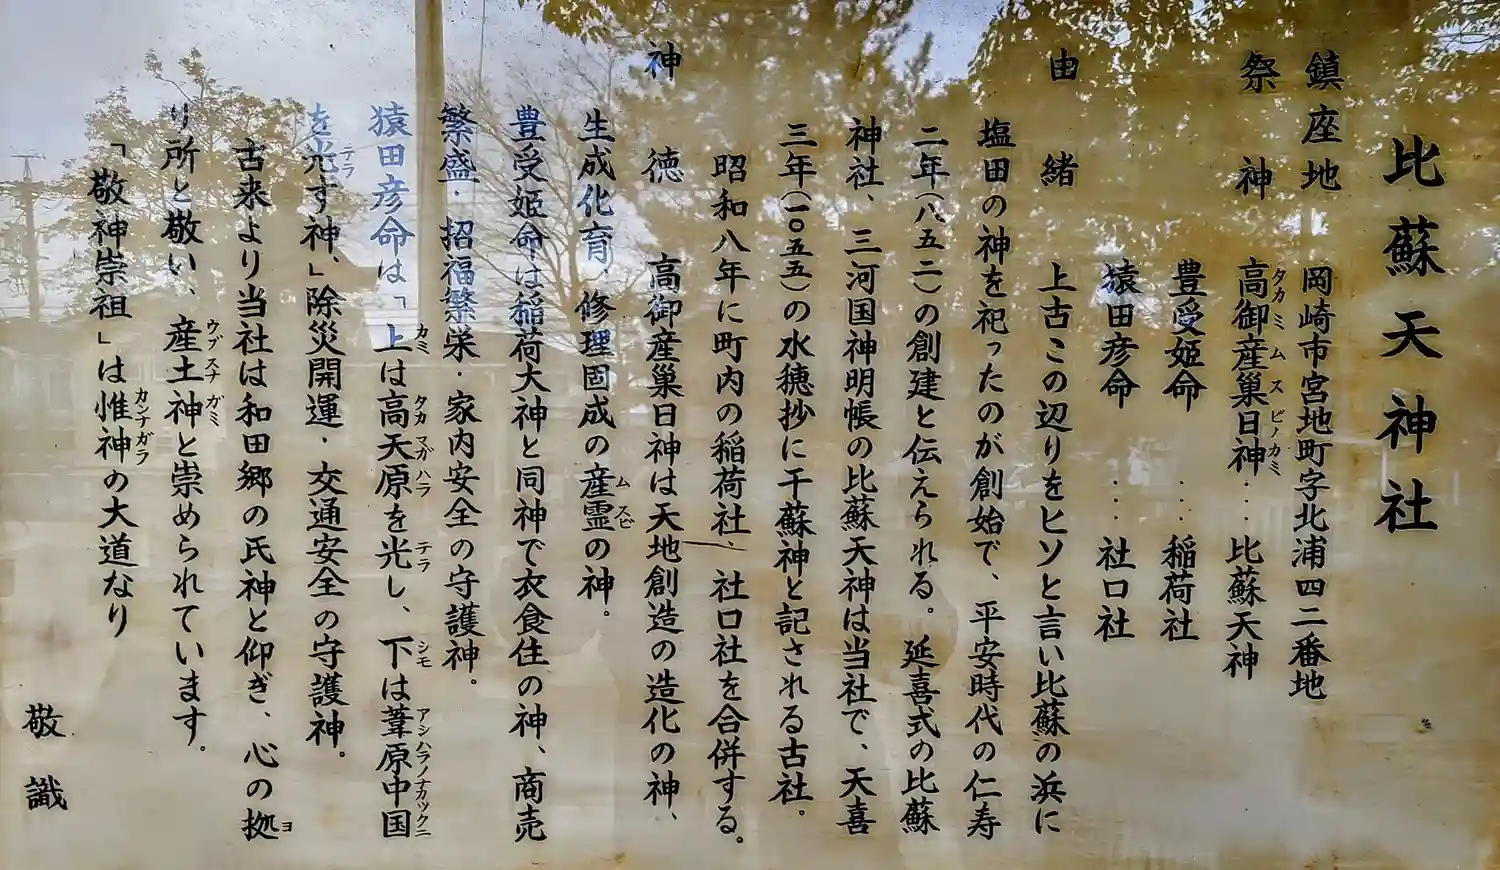 比蘇天神社
鎮座地 岡崎市宮地町字北浦四二番地
祭神 高御産巣日神…比蘇天神
タカミムスビノカミ
豊受姫命……稲荷社
猿田彦命……社口社
由緒 上古この辺りをヒソと言い比蘇の浜に
塩田の神を祀ったのが創始で、平安時代の仁寿
二年(八五二)の創建と伝えられる。延喜式の比蘇
神社、三河国神明帳の比蘇天神は当社で、天喜
三年(一〇五五)の水穂抄に干蘇神と記される古社。
昭和八年に町内の稲荷社、社口社を合併する。
神徳 高御産巣日神は天地創造の造化の神、
生成化育、修理固成の産霊の神。
ムスビ
豊受姫命は稲荷大神と同神で衣食住の神、商売
繁盛・招福繁栄・家内安全の守護神。
猿田彦命は「上は高天原を光し、下は葦原中国
カミ タカマガハラ テラ シモ アシハラノナカツクニ
を光す神、」除災開運・交通安全の守護神。
テラ
古来より当社は和田郷の氏神と仰ぎ、心の拠
ヨ
り所と敬い、産土神と崇められています。
ウブスナガミ
「敬神崇祖」は惟神の大道なり
カンナガラ
敬識